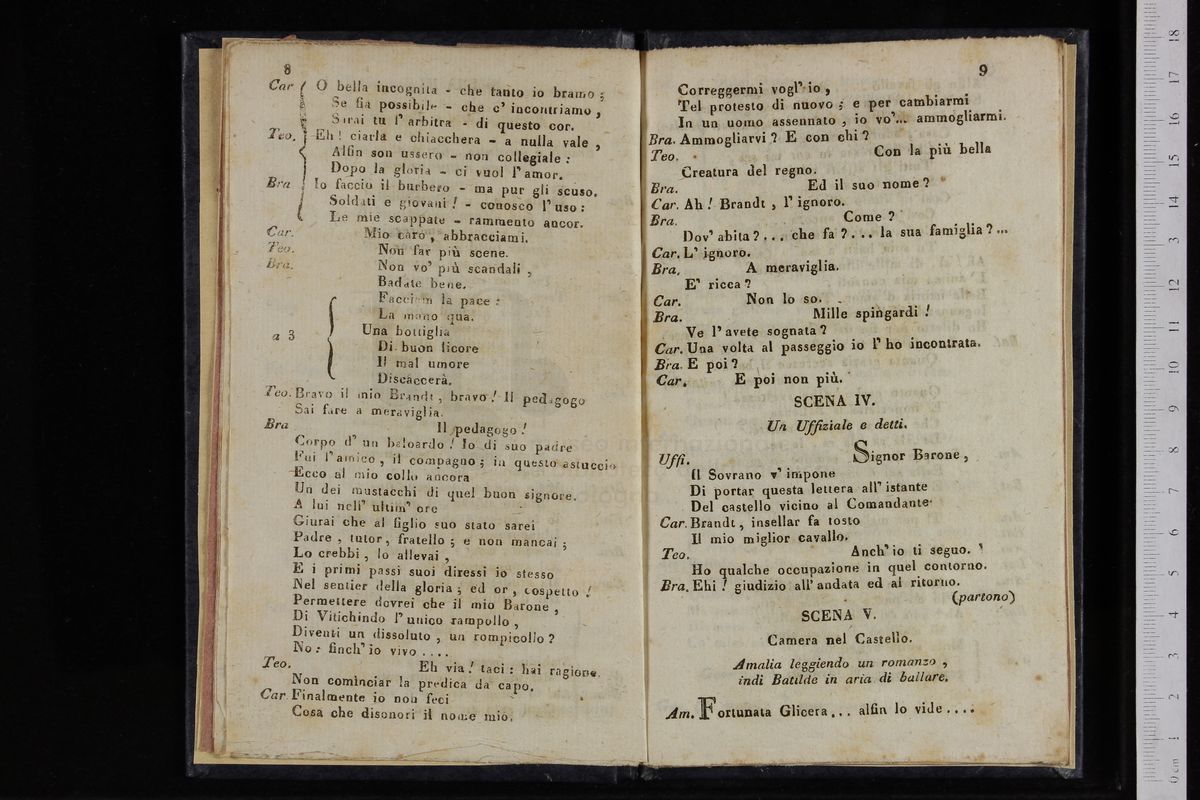 8
Car O bella incognita - che tanto io bramo ;
Se fia possibile - che c' incontriamo ,
Sarai tu l' arbitra - di questo cor.
Teo. Eh ! ciarla e chiacchera - a nulla vale ,
Alfin son ussero - non collegiale :
Dopo la gloria - ci vuol l' amor.
Bra Io faccio il burbero - ma pur gli scuso.
Soldati e giovani ! - conosco l' uso :
Le mie scappate - rammento ancor.
Car. Mio caro , abbracciami.
Teo. Non far più scene.
Bra. Non vo' più scandali ,
Badate bene.
Facciam la pace :
La mano qua.
a 3 Una bottiglia
Di buon licore
Il mal umore
Discaccerà.
Teo. Bravo il mio Brandt , bravo ! Il pedagogo
Sai fare a meraviglia.
Bra Il pedagogo !
Corpo d' un baloardo ! Io di suo padre
Fui l' amico , il compagno ; in questo astuccio
Ecco al mio collo ancora
Un dei mustacchi di quel buon signore.
A lui nell' ultim' ore
Giurai che al figlio suo stato sarei
Padre , tutor , fratello ; e non mancai ;
Lo crebbi , lo allevai ,
E i primi passi suoi diressi io stesso
Nel sentier della gloria ; ed or , cospetto !
Permettere dovrei che il mio Barone ,
Di Vitichindo l' unico rampollo ,
Diventi un dissoluto , un rompicollo ?
No : finch' io vivo ....
Teo. Eh via ! taci : hai ragione.
Non cominciar la predica da capo.
Car Finalmente io non feci
Cosa che disonori il nome mio.
9
Correggermi vogl' io ,
Tel protesto di nuovo ; e per cambiarmi
In un uomo assennato , io vo'... ammogliarmi.
Bra. Ammogliarvi ? E con chi ?
Teo. Con la più bella
Creatura del regno.
Bra. Ed il suo nome ?
Car. Ah ! Brandt , l' ignoro.
Bra. Come ?
Dov' abita ? ... che fa ? ... la sua famiglia ? ...
Car. L' ignoro.
Bra. A meraviglia.
E' ricca ?
Car. Non lo so.
Bra. Mille spingardi !
Ve l' avete sognata ?
Car. Una volta al passeggio io l' ho incontrata.
Bra. E poi ?
Car. E poi non più.
SCENA IV.
Un Uffiziale e detti.
Uffi. Signor Barone ,
Il Sovrano v' impone
Di portar questa lettera all' istante
Del castello vicino al Comandante.
Car. Brandt , insellar fa tosto
Il mio miglior cavallo.
Teo. Anch' io ti seguo.
Ho qualche occupazione in quel contorno.
Bra. Ehi ! giudizio all' andata ed al ritorno.
(partono)
SCENA V.
Camera nel Castello.
Amalia leggiendo un romanzo ,
indi Batilde in aria di ballare.
Am. Fortunata Glicera ... alfin lo vide ....
0 cm 1 2 3 4 5 6 7 8 9 10 11 12 13 14 15 16 17 18